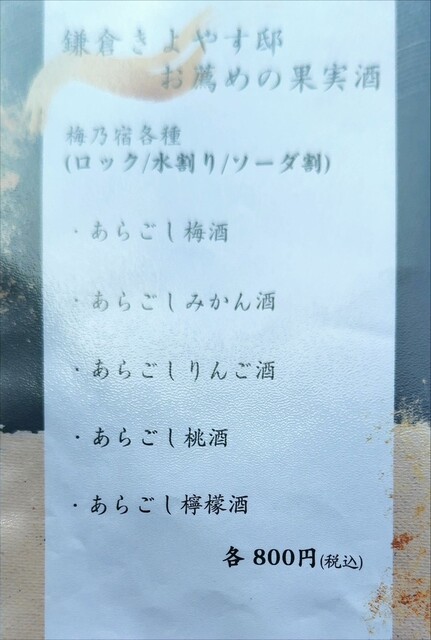 鎌倉きよやす邸
お薦めの果実酒
梅乃宿各種
(ロック/水割り/ソーダ割)
・あらごし梅酒
・あらごしみかん酒
・あらごしりんご酒
・あらごし桃酒
・あらごし檸檬酒
各 800円(税込)